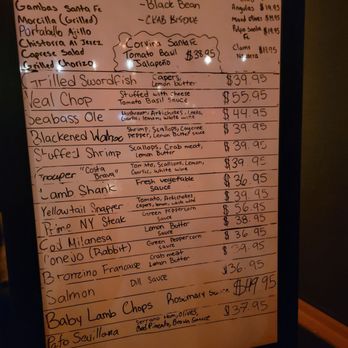 Gambas Santa Fe
Marcilla (Grilled)
Portabello Ajillo
Chistorra Al Jerez
Caprese Salad
Grilled Chorizo
Black Bean
CRAB BISQUE
Angulas $19.95
Mixed Olives $
Pulpo Santa Fe $
Clams $19.95
Corvina Santa Fe
Tomato Basil $38.95
Jalapeño
Grilled Swordfish Capers, Lemon butter $39.95
Veal Chop Stuffed with cheese Tomato Basil Sauce $55.95
Seabass Ole Mushroom, Artichokes, Leeks, Garlic, lemon, white wine $44.95
Blackened Wahoo Shrimp, Scallops, Cayenne Pepper, Lemon Butter, white wine $39.95
Stuffed Shrimp Scallops, Crab meat, Lemon Butter $39.95
Grouper "Costa Brava" Tomato, Scallions, Lemon, Garlic, white wine $39.95
Lamb Shank Fresh vegetable sauce $36.95
Yellowtail Snapper Tomato, Artichokes, Capers, lemon, white wine $39.95
Prime NY Steak Green Peppercorn sauce $56.95
Cod Milanesa Lemon Butter sauce $38.95
Conejo (Rabbit) Green Peppercorn sauce $36.95
Bronzino Francaise Crab meat Lemon Butter $39.95
Salmon Dill Sauce $36.95
Baby Lamb Chops Rosemary $49.95
Pato Sevillana Serrano Ham, Olives, Red Pimento, Brown Sauce $37.95